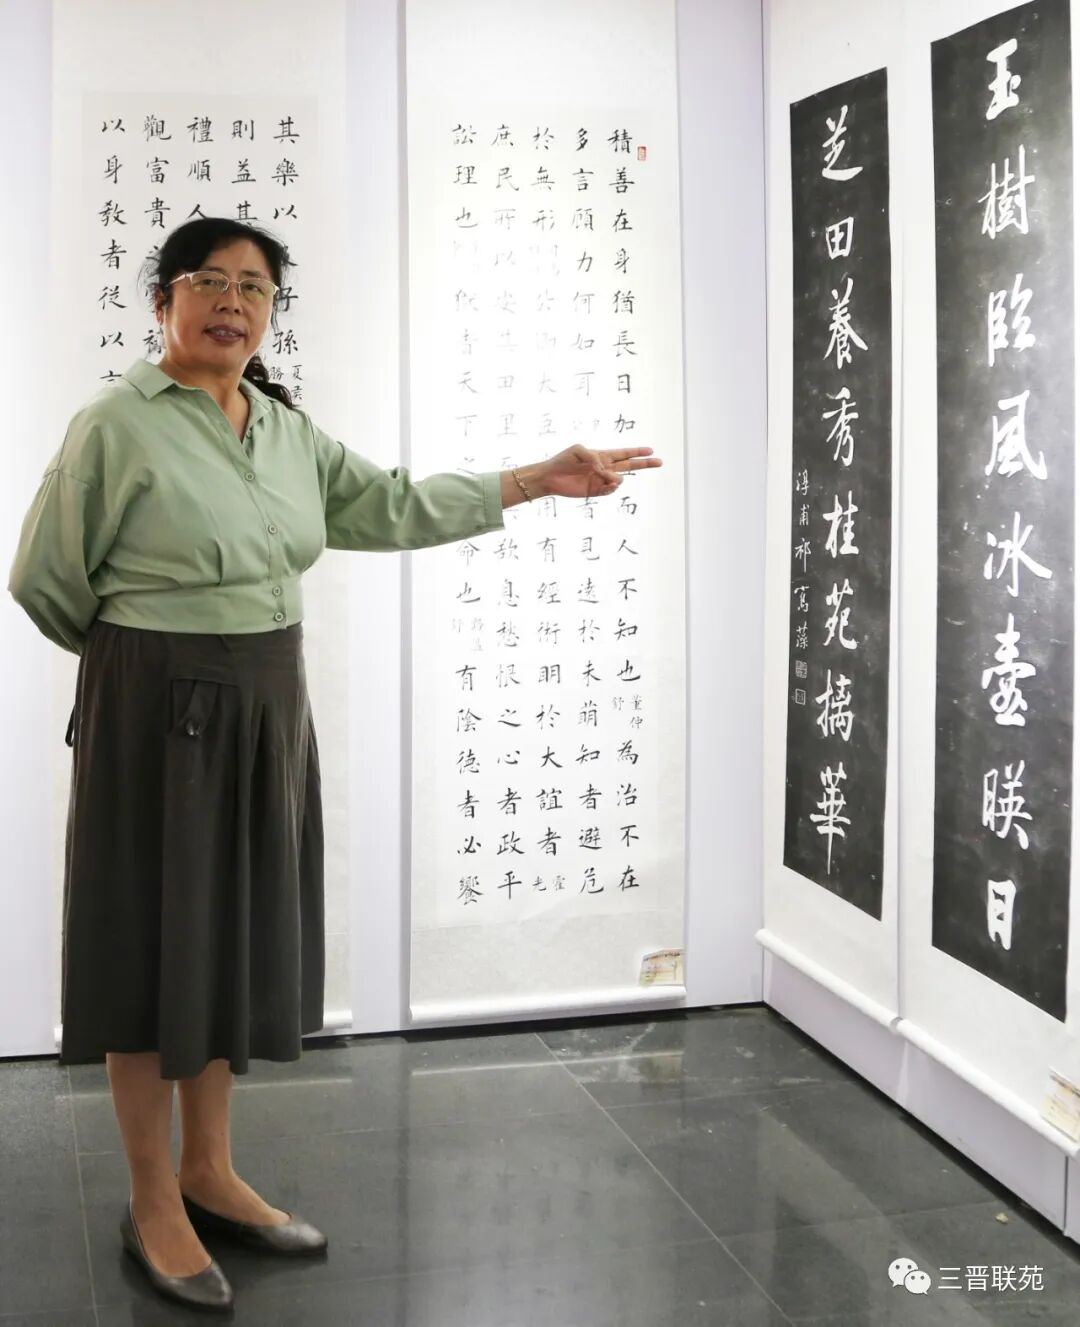 玉樹臨風冰壺暎日
芝田養秀桂苑摛華
淳甫祁寯藻
積善在身猶長日加
而人不知也
董仲
舒
為治不在
多言顧力何如耳
者見遠於未萌知者避危
於無形
用有經術明於大誼者
霍
光
庶民所以安其田里而
歎息愁恨之心者政平
訟理也
獄者天下之
命也
路溫
舒
有陰德者必饗
其樂以
子孫
夏侯
勝
則益其
禮順人
觀富貴之
以身教者從以言
三晋联苑